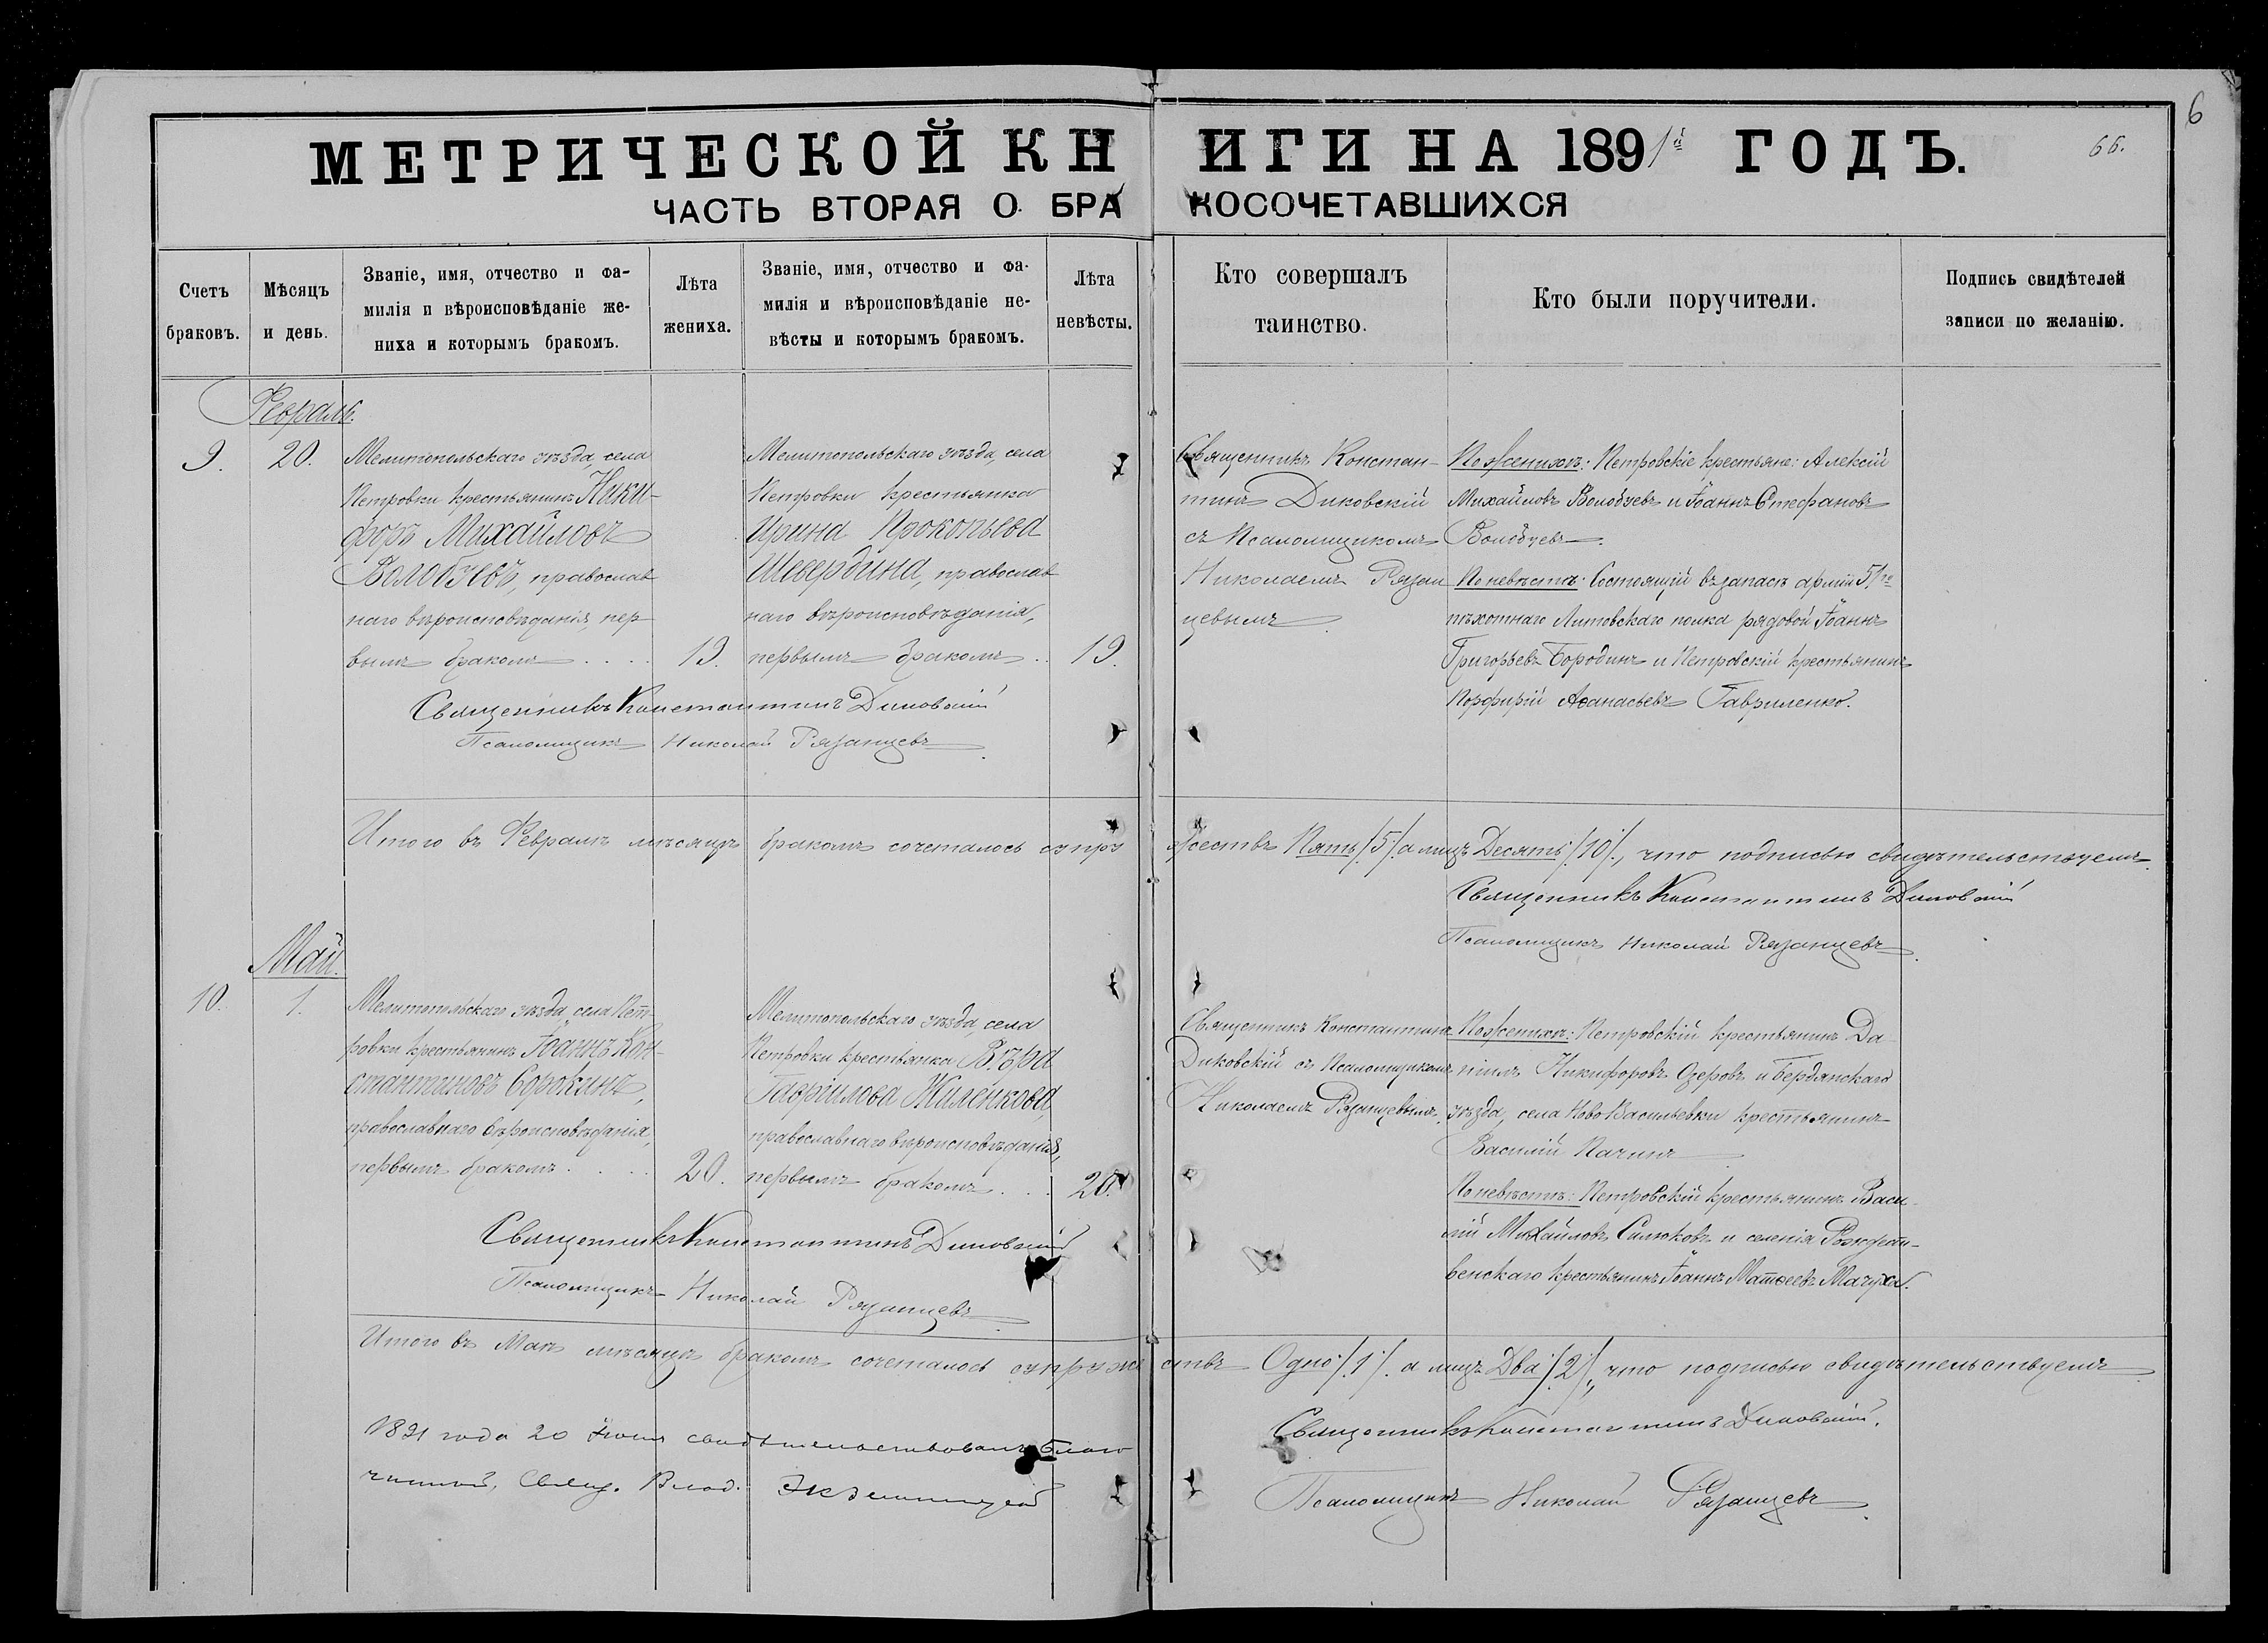 6
МЕТРИЧЕСКОЙ КНИГИ НА 1891й ГОДЪ.
66.
ЧАСТЬ ВТОРАЯ О БРАКОСОЧЕТАВШИХСЯ
Счетъ
браковъ.
Мѣсяцъ
и день.
Званіе, имя, отчество и фа-
милія и вѣроисповѣданіе же-
ниха и которымъ бракомъ.
Лѣта
жениха.
Званіе, имя, отчество и фа-
милія и вѣроисповѣданіе не-
вѣсты и которымъ бракомъ.
Лѣта
невѣсты.
Кто совершалъ
таинство.
Кто были поручители.
Подпись свидѣтелей
записи по желанію.
Февраль.
9.
20.
Мелитопольскаго уѣзда, села
Петровки крестьянинъ Ники-
форъ Михайловъ
Волобуевъ, православ
наго вѣроисповѣданія, пер
вымъ бракомъ . . . .
19.
Мелитопольскаго уѣзда, села
Петровки крестьянка
Ирина Прокопьева
Шевердина, православ
наго вѣроисповѣданія,
первымъ бракомъ . .
19.
Священникъ Констан-
тинъ Диковскій
съ Псаломщикомъ
Николаемъ Рязан
цевымъ
По женихѣ: Петровскіе крестьяне: Алексій
Михайловъ Волобуевъ и Іоаннъ Стефановъ
Волобуевъ.
По невѣстѣ: Состоящій въ запасѣ арміи 51го
пѣхотнаго Литовскаго полка рядовой Іоаннъ
Григорьевъ Бородинъ и Петровскій крестьянинъ
Порфирій Аѳанасьевъ Гавриленко.
Священникъ Константинъ Диковскій
Псаломщикъ Николай Рязанцевъ
Итого въ Февралѣ мѣсяцѣ бракомъ сочеталось супружествъ Пять /5/. а лицъ Десять /10/., что подписью свидѣтельствуемъ
Священникъ Константинъ Диковскій
Псаломщикъ Николай Рязанцевъ
Май.
10.
1.
Мелитопольскаго уѣзда, села Пет-
ровки крестьянинъ Іоаннъ Кон-
стантиновъ Сорокинъ,
православнаго вѣроисповѣданія,
первымъ бракомъ . . . .
20.
Мелитопольскаго уѣзда, села
Петровки крестьянка Вѣра
Гавріилова Жиленкова,
православнаго вѣроисповѣданія,
первымъ бракомъ . . .
20.
Священникъ Константинъ
Диковскій съ Псаломщикомъ
Николаемъ Рязанцевымъ.
По женихѣ: Петровскій крестьянинъ Да
ніилъ Никифоровъ Озеровъ и Бердянскаго
уѣзда, села Ново Васильевки крестьянинъ
Василій Пачинъ
По невѣстѣ: Петровскій крестьянинъ Васи
лій Михайловъ Силюковъ и селенія Рождест-
венскаго крестьянинъ Іоаннъ Матѳеевъ Мачуха.
Священникъ Константинъ Диковскій
Псаломщикъ Николай Рязанцевъ
Итого въ Маѣ мѣсяцѣ бракомъ сочеталось супружествъ Одно /1/. а лицъ Два /2/., что подписью свидѣтельствуемъ
Священникъ Константинъ Диковскій.
Псаломщикъ Николай Рязанцевъ
1891 года 20 Іюня свидѣтельствовалъ Благо
чинный, Свящ. Влад.